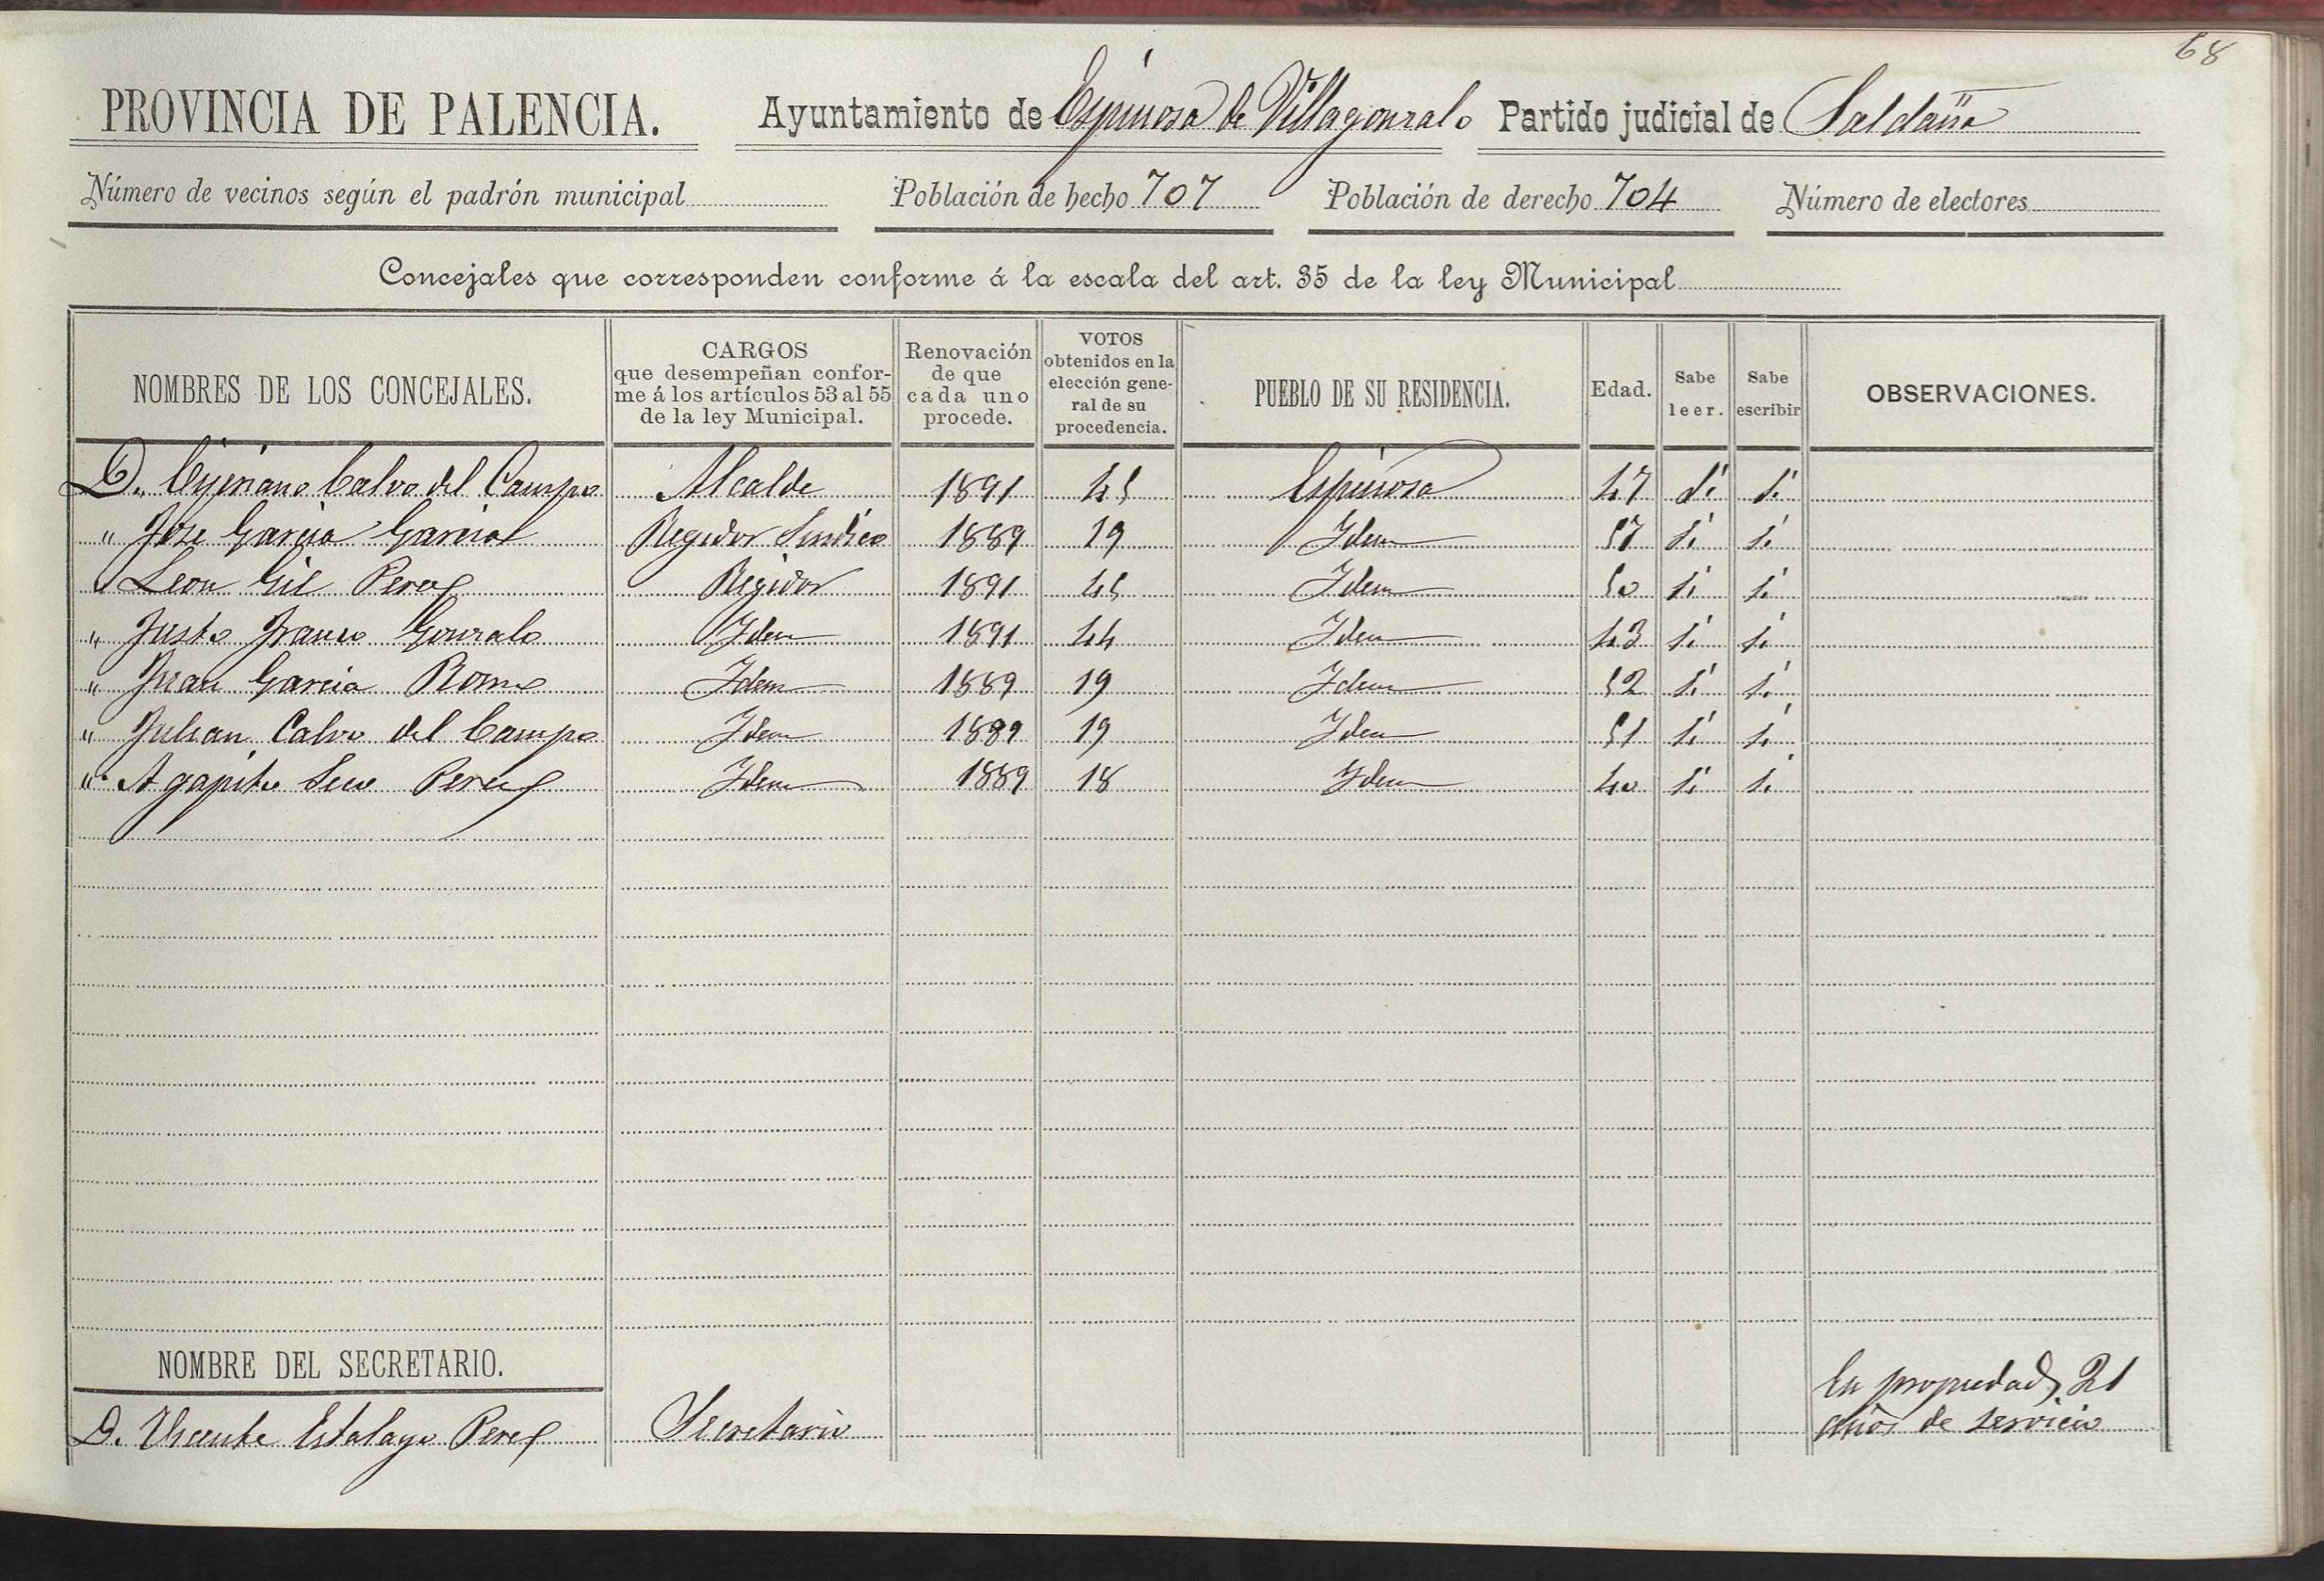 68
PROVINCIA DE PALENCIA. Ayuntamiento de Espinosa de Villagonzalo Partido judicial de Saldaña
Número de vecinos según el padrón municipal Población de hecho 707 Población de derecho 704 Número de electores
Concejales que corresponden conforme á la escala del art. 35 de la ley Municipal
NOMBRES DE LOS CONCEJALES.
CARGOS
que desempeñan confor-
me á los artículos 53 al 55
de la ley Municipal.
Renovación
de que
cada uno
procede.
VOTOS
obtenidos en la
elección gene-
ral de su
procedencia.
PUEBLO DE SU RESIDENCIA.
Edad.
Sabe
leer.
Sabe
escribir
OBSERVACIONES.
D. Cipriano Calvo del Campo Alcalde 1891 45 Espinosa 47 sí sí
" José Garcia Garcia Regidor Sindico 1889 19 Idem 57 sí sí
" Leon Gil Perez Regidor 1891 45 Idem 50 sí sí
" Justo Franco Gonzalo Idem 1891 44 Idem 43 sí sí
" Juan Garcia Romo Idem 1889 19 Idem 52 sí sí
" Julian Calvo del Campo Idem 1889 19 Idem 51 sí sí
" Agapito Perez Idem 1889 18 Idem 40 sí sí
NOMBRE DEL SECRETARIO.
D. Vicente Estalayo Perez Secretario
En propiedad, 21
años de servicio